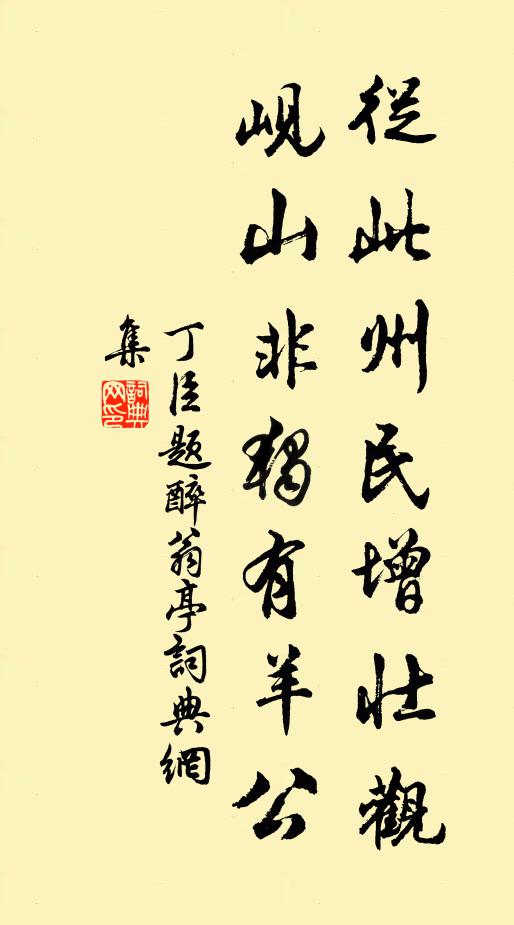 從此州民增壯觀
峴山非獨有羊公
丁臣題醉翁亭詞典網
集
詞典